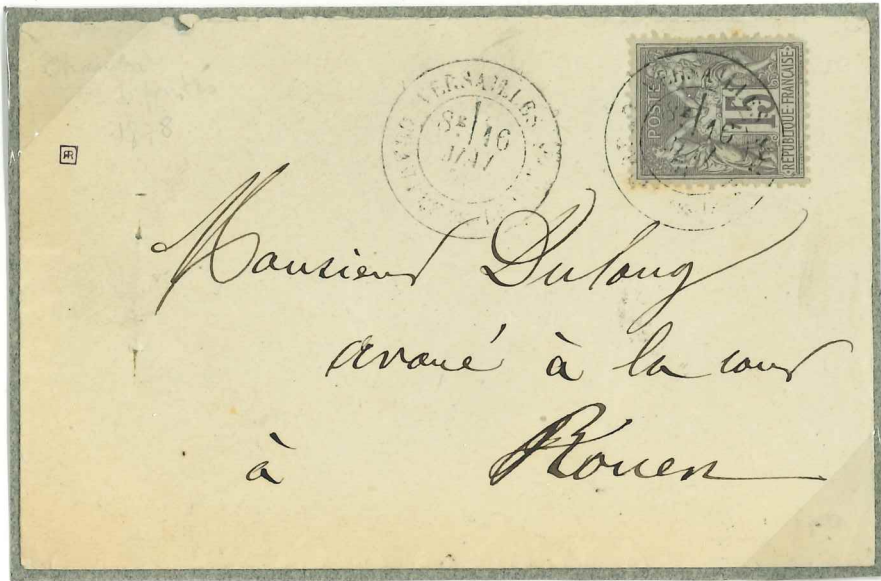 VERSAILLES
8E 16
MAI
POSTE
15
REPUBLIQUE FRANÇAISE
Monsieur Dulong
avoué à la cour
à Rouen